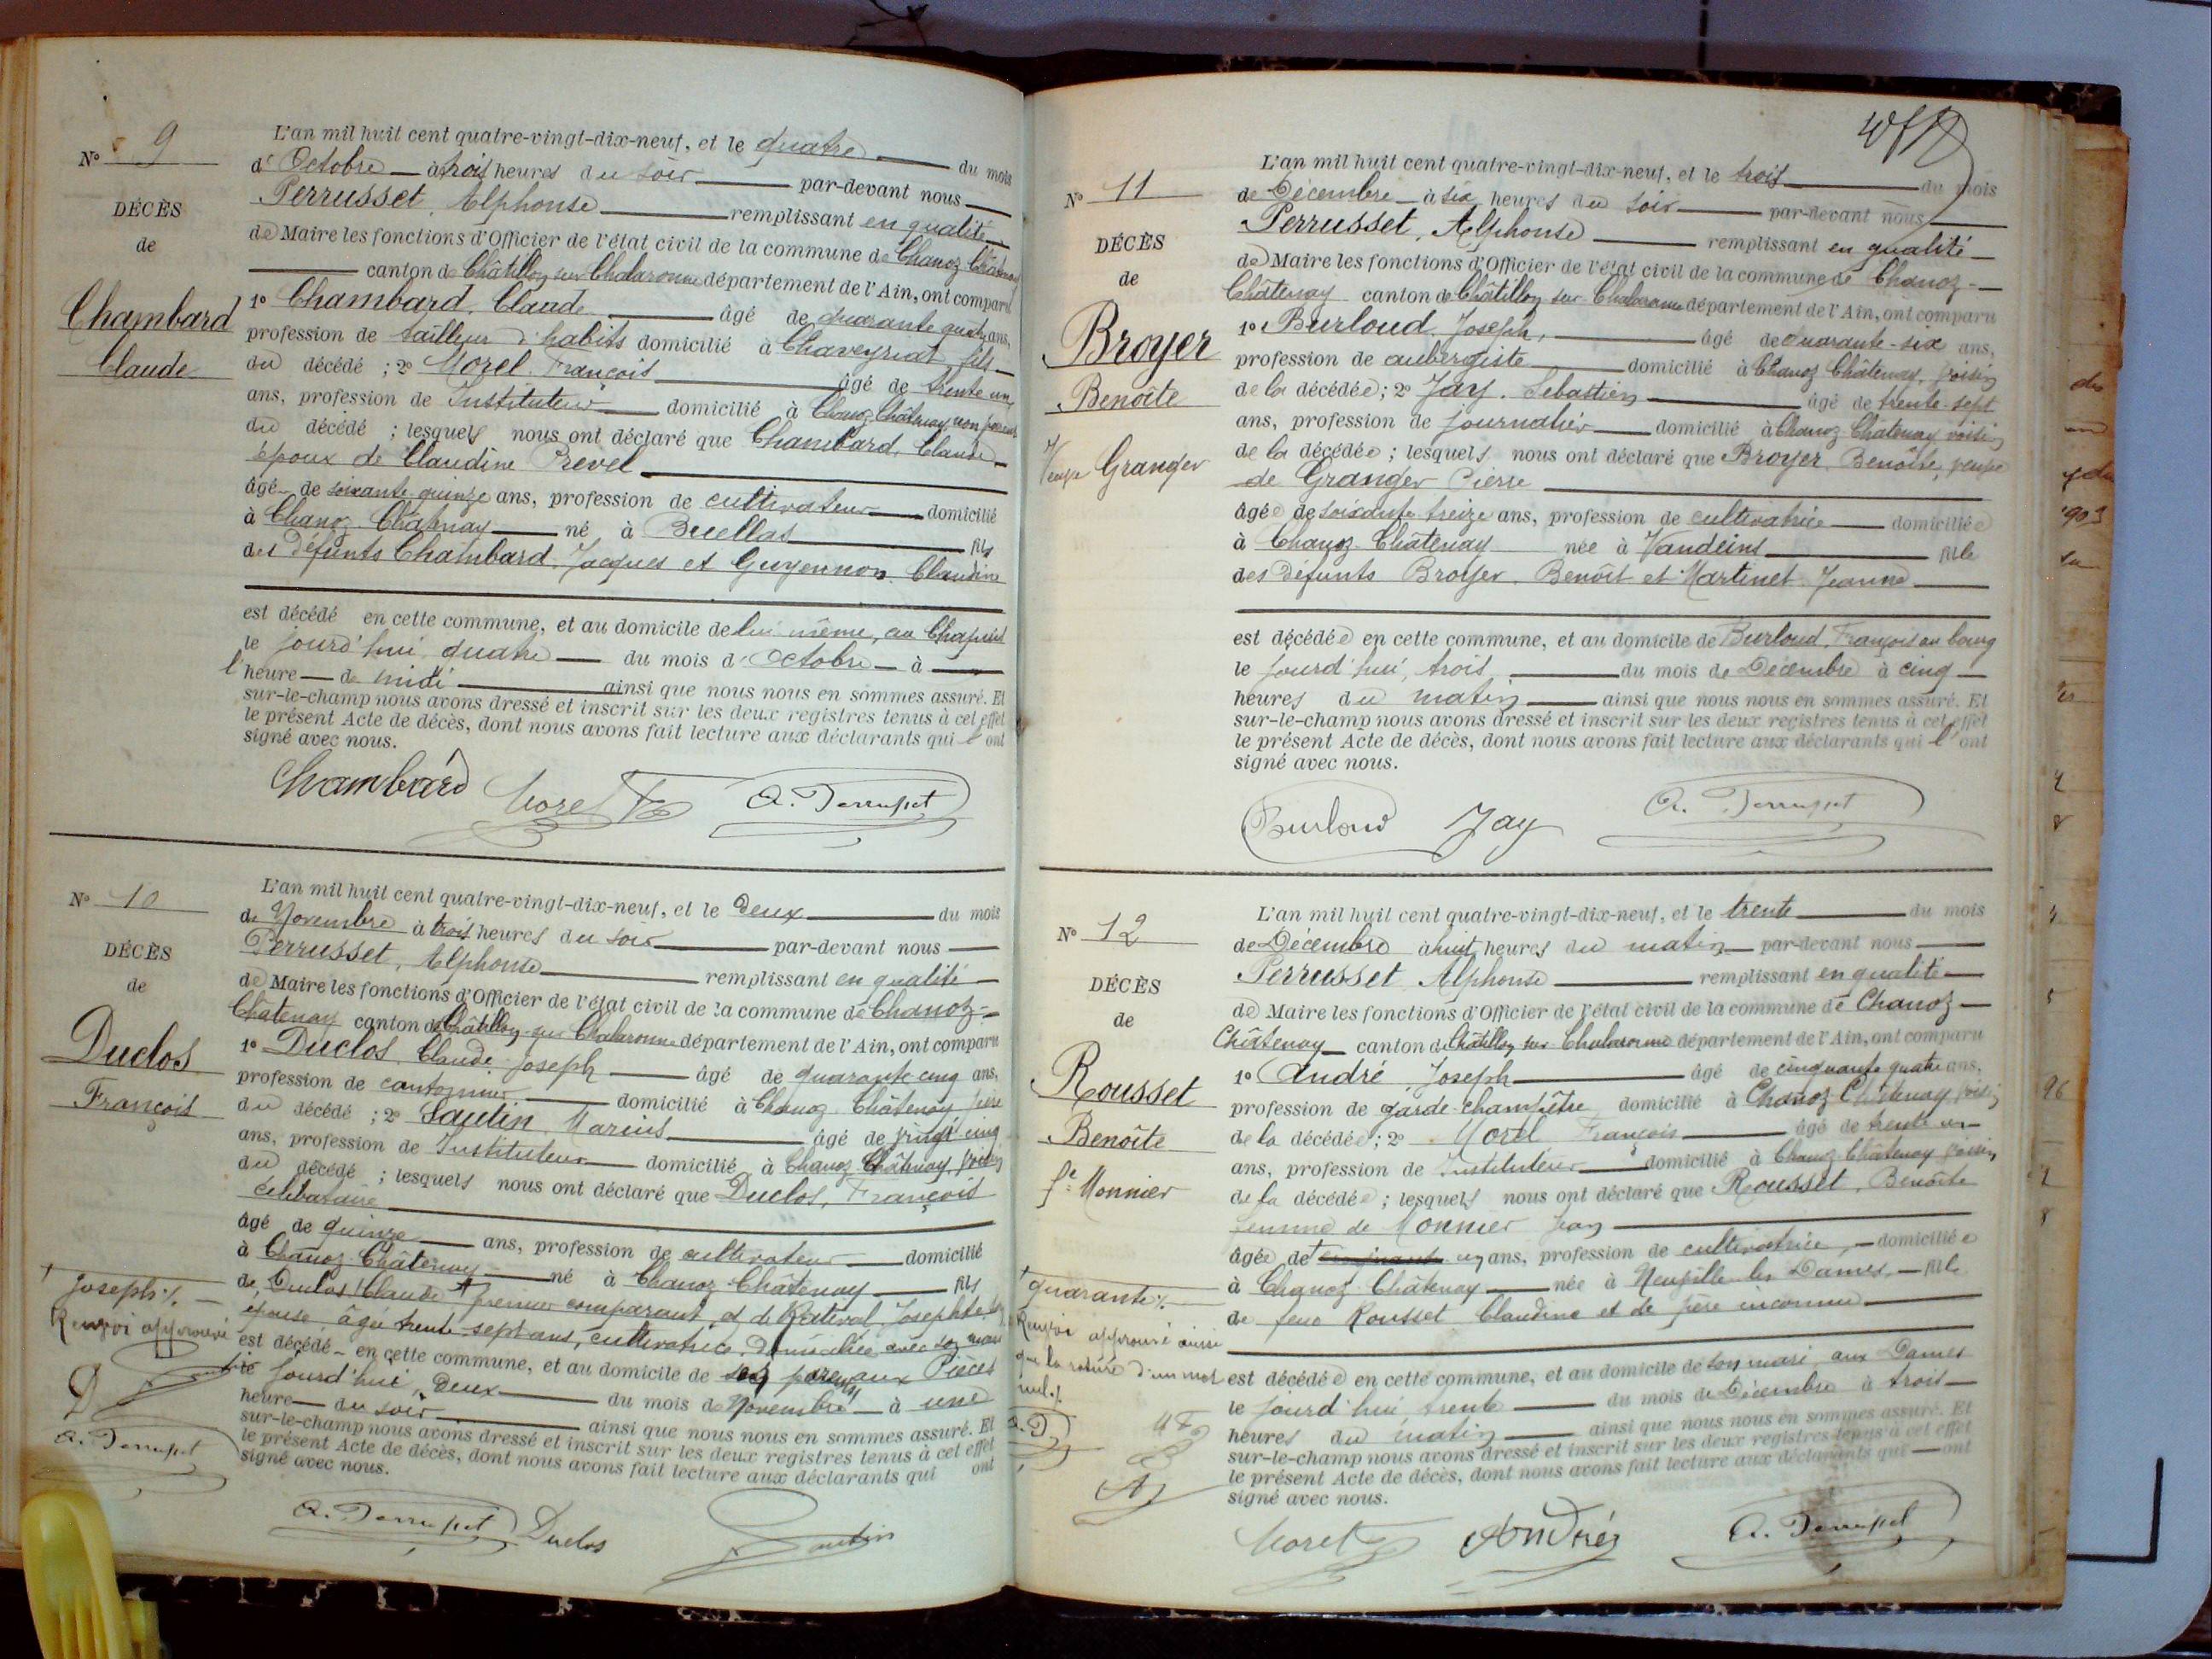 N° 9
DÉCÈS
de
Chambard
Claude
L'an mil huit cent quatre-vingt-dix-neuf, et le quatre du mois
d'Octobre à trois heures du soir par-devant nous
Perrusset, Alphonse remplissant en qualité
de Maire les fonctions d'Officier de l'état civil de la commune de Chanoz Châtenay
canton de Châtillon sur Chalaronne département de l'Ain, ont comparu
1° Chambard, Claude âgé de quarante quatre ans,
profession de tailleur d'habits domicilié à Chaveyriat fils
du décédé ; 2° Morel François âgé de trente un
ans, profession de Instituteur domicilié à Chanoz Châtenay non parent
du décédé ; lesquels nous ont déclaré que Chambard, Claude
époux de Claudine Prevel
âgé de soixante quinze ans, profession de cultivateur domicilié
à Chanoz Châtenay né à Buellas fils
des défunts Chambard, Jacques et Guyennon, Claudine
est décédé en cette commune, et au domicile de lui même, au
le jourd'hui quatre du mois d'Octobre à
l'heure de midi ainsi que nous nous en sommes assuré. Et
sur-le-champ nous avons dressé et inscrit sur les deux registres tenus à cet effet
le présent Acte de décès, dont nous avons fait lecture aux déclarants qui l'ont
signé avec nous.
Chambard Morel A. Perrusset
N° 10
DÉCÈS
de
Duclos
François
L'an mil huit cent quatre-vingt-dix-neuf, et le deux du mois
de Novembre à trois heures du soir par-devant nous
Perrusset, Alphonse remplissant en qualité
de Maire les fonctions d'Officier de l'état civil de la commune de Chanoz-
Châtenay canton de Châtillon sur Chalaronne département de l'Ain, ont comparu
1° Duclos, Claude Joseph âgé de quarante cinq ans,
profession de cantonnier domicilié à Chanoz Châtenay père
du décédé ; 2° Sautin Marius âgé de vingt cinq
ans, profession de Instituteur domicilié à Chanoz Châtenay, voisin
du décédé ; lesquels nous ont déclaré que Duclos, François
célibataire
âgé de quinze ans, profession de cultivateur domicilié
à Chanoz Châtenay né à Chanoz Châtenay fils
de Duclos Claude premier comparant, et de Josephte, son
épouse, âgée trente sept ans, cultivatrice, domiciliée avec son mari
est décédé en cette commune, et au domicile de ses parents aux Pièces
le jourd'hui, deux du mois de Novembre à une
heure du soir ainsi que nous nous en sommes assuré. Et
sur-le-champ nous avons dressé et inscrit sur les deux registres tenus à cet effet
le présent Acte de décès, dont nous avons fait lecture aux déclarants qui ont
signé avec nous.
Joseph
Renvoi approuvé
D
A. Perrusset
A. Perrusset Duclos Sautin
N° 11
DÉCÈS
de
Broyer
Benoîte
Veuve Granger
L'an mil huit cent quatre-vingt-dix-neuf, et le trois du mois
de Décembre à six heures du soir par-devant nous
Perrusset, Alphonse remplissant en qualité
de Maire les fonctions d'Officier de l'état civil de la commune de Chanoz-
Châtenay canton de Châtillon sur Chalaronne département de l'Ain, ont comparu
1° Burloud, Joseph, âgé de quarante-six ans,
profession de aubergiste domicilié à Chanoz Châtenay, voisin
de la décédée ; 2° Jay, Sebastien âgé de trente-sept
ans, profession de journalier domicilié à Chanoz Châtenay voisin
de la décédée ; lesquels nous ont déclaré que Broyer, Benoîte, veuve
de Granger Pierre
âgée de soixante treize ans, profession de cultivatrice domiciliée
à Chanoz Châtenay née à Vandeins fille
des défunts Broyer, Benoît et Martinet Jeanne
est décédée en cette commune, et au domicile de Burloud, François au bourg
le jourd'hui, trois du mois de Décembre à cinq
heures du matin ainsi que nous nous en sommes assuré. Et
sur-le-champ nous avons dressé et inscrit sur les deux registres tenus à cet effet
le présent Acte de décès, dont nous avons fait lecture aux déclarants qui l'ont
signé avec nous.
Burloud Jay A. Perrusset
N° 12
DÉCÈS
de
Rousset
Benoîte
fe Monnier
L'an mil huit cent quatre-vingt-dix-neuf, et le trente du mois
de Décembre à huit heures du matin par-devant nous
Perrusset Alphonse remplissant en qualité
de Maire les fonctions d'Officier de l'état civil de la commune de Chanoz
Châtenay canton de Châtillon sur Chalaronne département de l'Ain, ont comparu
1° André Joseph âgé de cinquante quatre ans,
profession de garde-champêtre domicilié à Chanoz Châtenay voisin
de la décédée ; 2° Morel François âgé de trente un
ans, profession de Instituteur domicilié à Chanoz Châtenay voisin
de la décédée ; lesquels nous ont déclaré que Rousset, Benoîte
femme de Monnier Jean
âgée de cinquante un ans, profession de cultivatrice, domiciliée
à Chanoz Châtenay née à Neuville les Dames, fille
de feue Rousset Claudine et de père inconnu
est décédée en cette commune, et au domicile de son mari aux Dames
le jourd'hui trente du mois de Décembre à trois
heures du matin ainsi que nous nous en sommes assuré. Et
sur-le-champ nous avons dressé et inscrit sur les deux registres tenus à cet effet
le présent Acte de décès, dont nous avons fait lecture aux déclarants qui ont
signé avec nous.
quarante
Renvoi approuvé ainsi
que la rature d'un mot
nul.
Morel André A. Perrusset
903
96